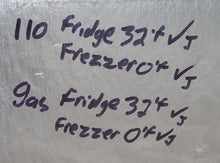 110 Fridge 32°f √J
Frezzer 0°f √J
gas Fridge 32°f √J
Frezzer 0°f √J